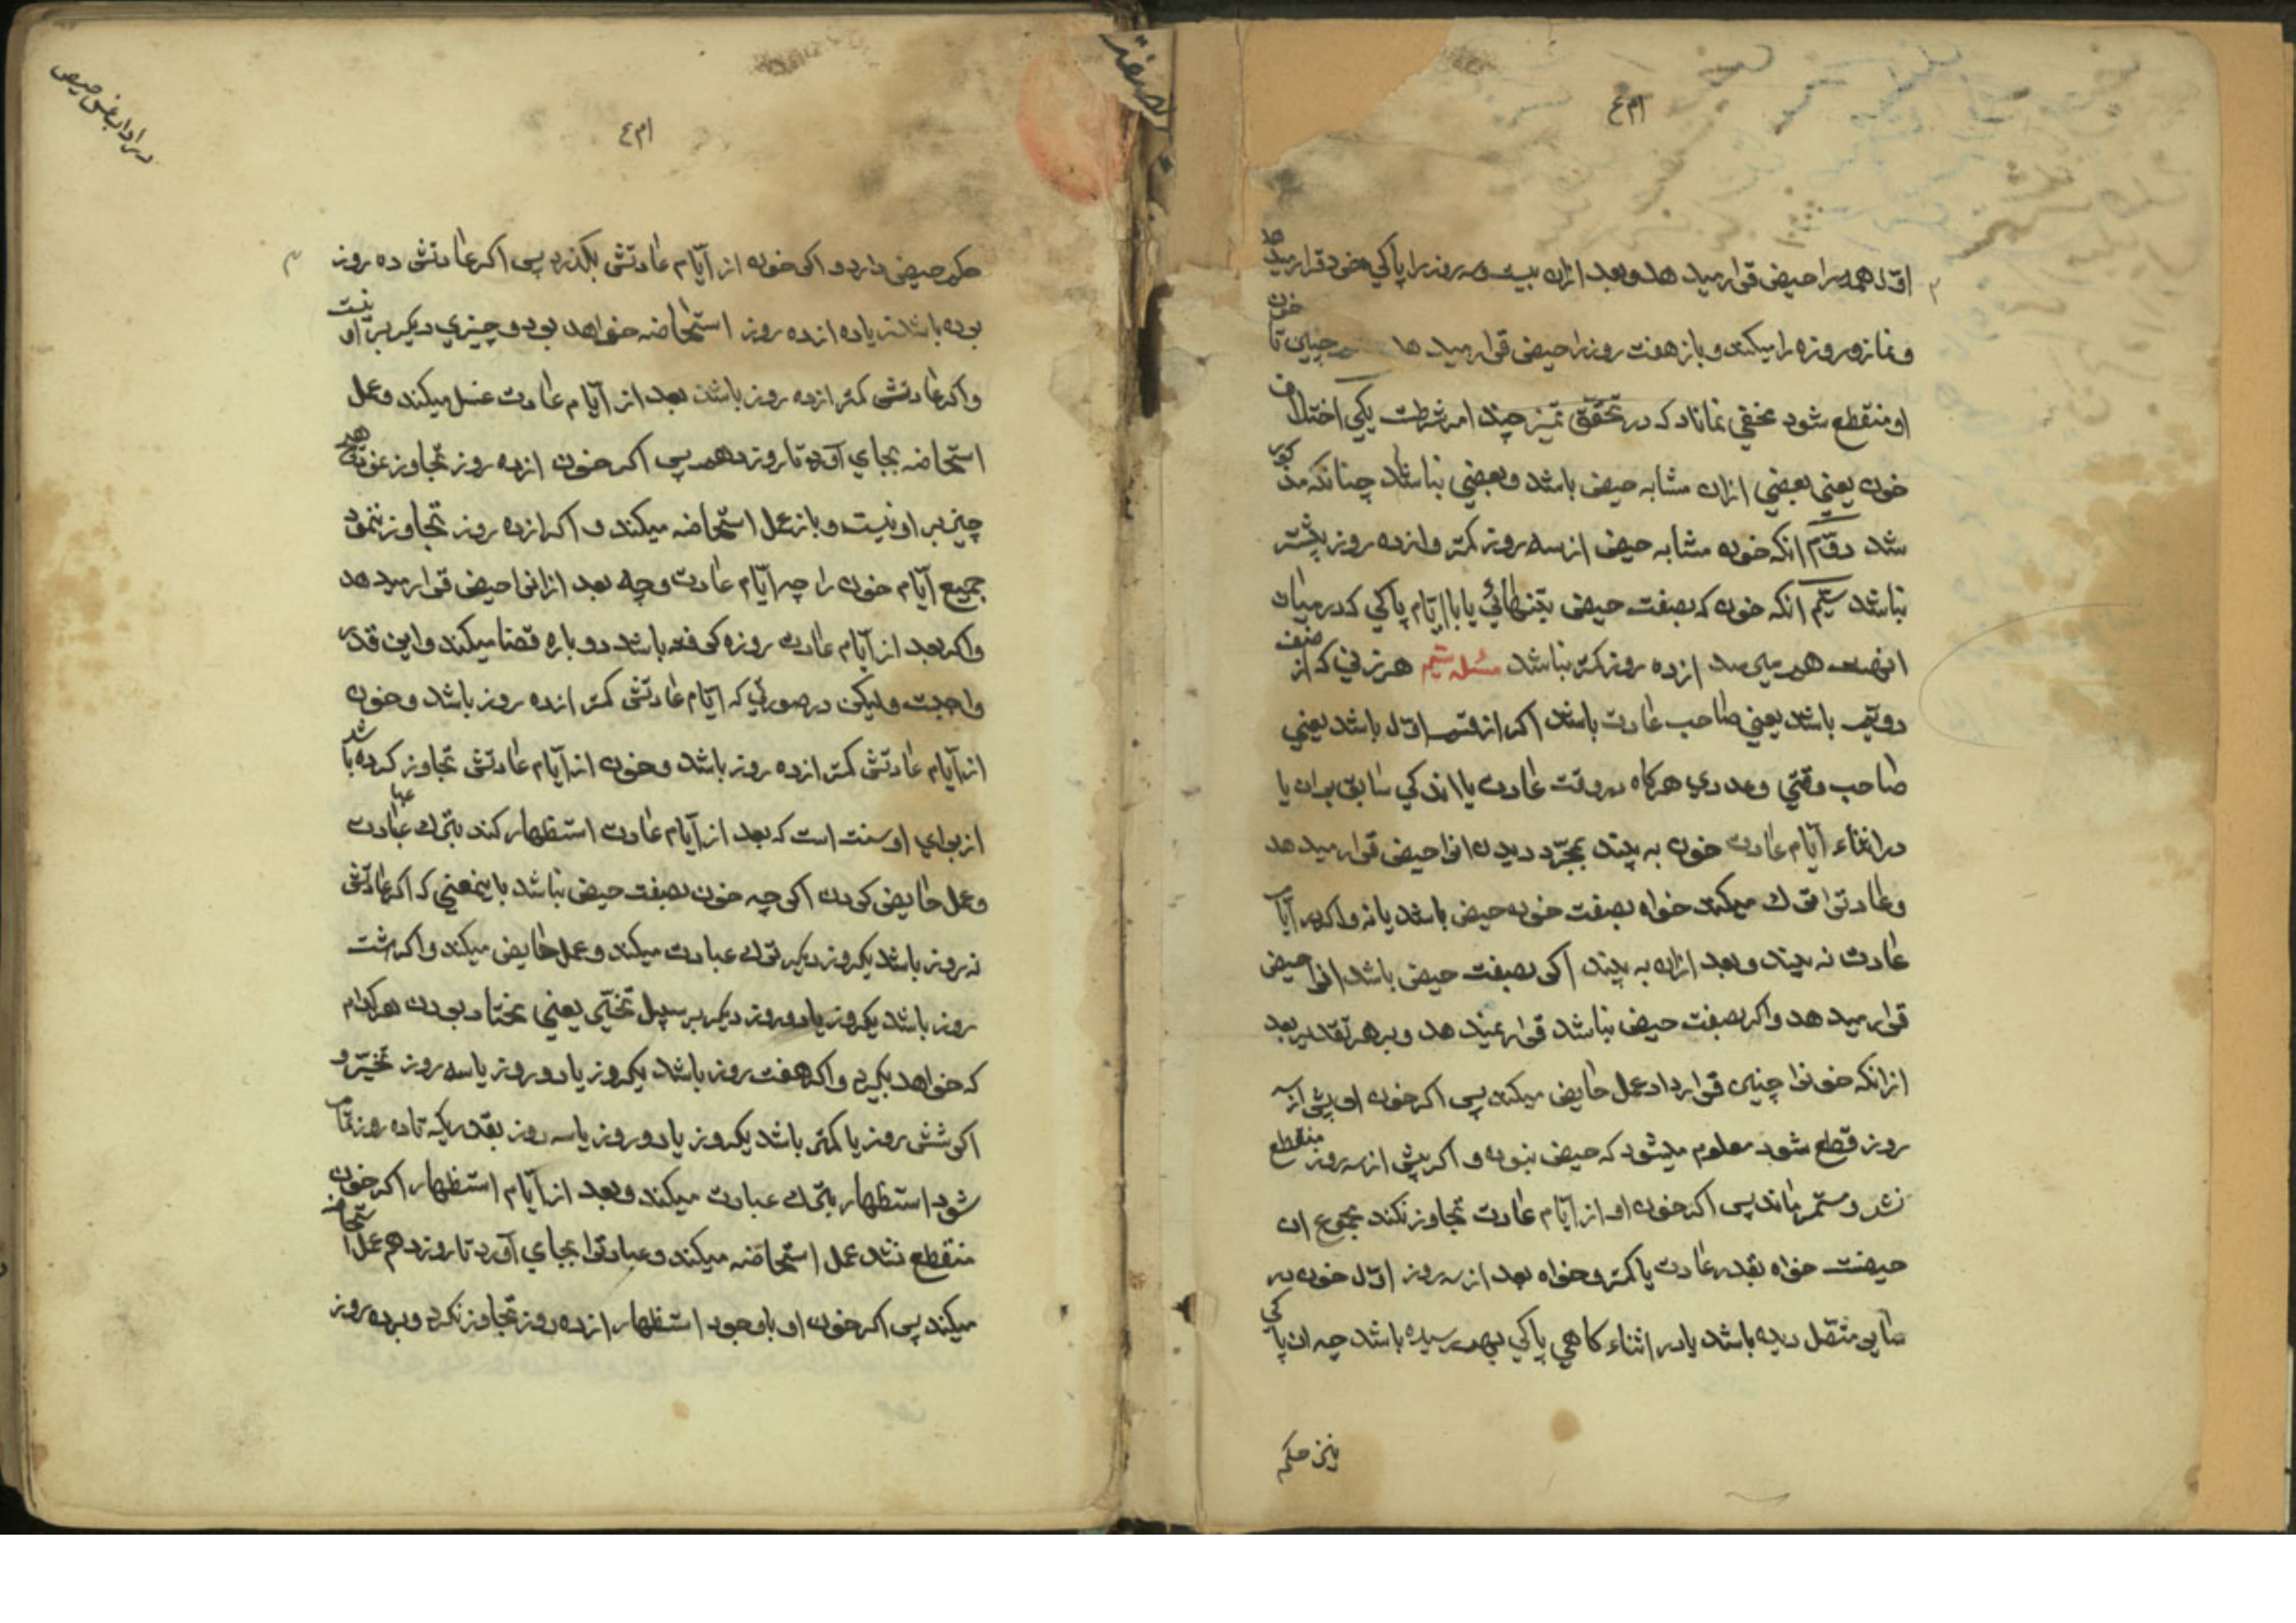 اول همه را حیض قرار میدهد و بعد ازان بیست و سه روز را پاکی خود قرار میدهد
و نماز و روزه را میکند و باز هفت روز را حیض قرار میدهد چنین تا خون
او منقطع شود مخفی نماناد که در تحقق تمیز چند امر شرطست یکی اختلاف
خون یعنی بعضی ازان مشابه حیض باشد و بعضی نباشد چنانکه مذکور
شد دوّم انکه خون مشابه حیض از سه روز کمتر و از ده روز بیشتر
نباشد سیّم انکه خون که بصفت حیض بتنهائی یا با ایّام پاکی که در میان
انهست هم میرسد از ده روز کمتر نباشد مسئله سیّم هر زنی که از صنف
دویّم باشد یعنی صاحب عادت باشد اکر از قسم اوّل باشد یعنی
صاحب وقتی و عددی هرکاه در وقت عادت یا اندکی سابق بران یا
در اثناء ایّام عادت خون به بیند بمجرّد دیدن انرا حیض قرار میدهد
و عادترا ترک میکند خواه بصفت خون حیض باشد یا نه و اکر در ایّام
عادت نه بیند و بعد ازان به بیند اکر بصفت حیض باشد انرا حیض
قرار میدهد و اکر بصفت حیض نباشد قرار نمیدهد و بر هر تقدیر بعد
ازانکه خونرا چنین قرار داد عمل حایض میکند پس اکر خون او پیش از سه
روز قطع شود معلوم میشود که حیض نبوده و اکر پیش از سه روز منقطع
نشد و مستمر ماند پس اکر خون او از ایّام عادت تجاوز نکند مجموع ان
حیضست خواه بقدر عادت یا کمتر و خواه بعد از سه روز اوّل خون در
سابق متّصل دیده باشد یا در اثناء کاهی پاکی بهم رسیده باشد چه ان پاکی
نیز حکم
در اداب غسل حیض
حکم حیض دارد و اکر خون از ایّام عادتش بکذرد پس اکر عادتش ده روز
بوده باشد زیاده از ده روز استحاضه خواهد بود و چیزی دیکر بر او نیست
و اکر عادتش کمتر از ده روز باشد بعد از ایّام عادت غسل میکند و عمل
استحاضه بجای آورد تا روز دهم پس اکر خون از ده روز تجاوز نمود
چیز بر او نیست و باز عمل استحاضه میکند و اکر از ده روز تجاوز ننمود
جمیع ایّام خون را چه ایّام عادت و چه بعد ازانرا حیض قرار میدهد
و اکر بعد از ایّام عادت روزه کرفته باشد دوباره قضا میکند و این قدر
واجبست و لیکن در صورتی که ایّام عادتش کمتر از ده روز باشد و خون
از ایّام عادتش کمتر از ده روز باشد و خون از ایّام عادتش تجاوز کرده باشد
از برای او سنت است که بعد از ایّام عادت استظهار کند بترک عبادت
و عمل حایض کردن اکر چه خون بصفت حیض نباشد باینمعنی که اکر عادتش
نه روز باشد یکروز دیکر ترک عبادت میکند و عمل حایض میکند و اکر هشت
روز باشد یکروز یا دو روز دیکر بر سبیل تخیّر یعنی مختار بودن هر کدام
که خواهد بکیرد و اکر هفت روز باشد یکروز یا دو روز یا سه روز تخیّر و
اکر شش روز یا کمتر باشد یکروز یا دو روز یا سه روز بقدریکه تا ده روز تمام
شود استظهار بترک عبادت میکند و بعد از ایّام استظهار اکر خون
منقطع نشد عمل استحاضه میکند و عبادترا بجای آورد تا روز دهم عمل استحاضه
میکند پس اکر خون او با وجود استظهار از ده روز تجاوز نکرد و بر ده روز